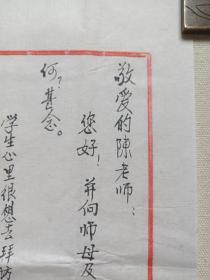 敬爱的陳老师：
您好！并向师母及
何？甚念。
学生心里很想去拜访